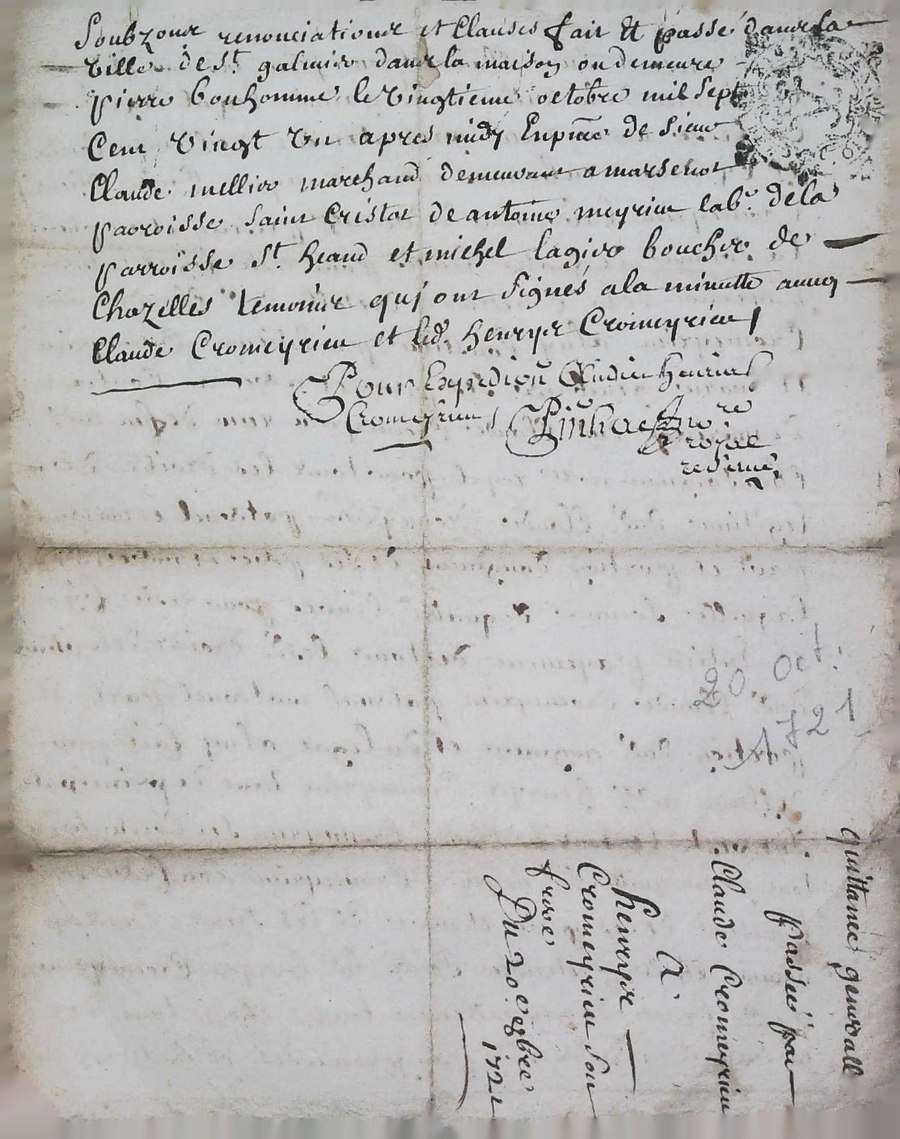 Soubzour renonciations et Clauses fait Et passé dans la
Ville de St galmier dans la maison ou demeure
pierre bonhomme le Vingtieme octobre mil Sept
Cent Vingt Un apres midy En pnce de Sieur
Claude mellier marchand demeurant a marsenot
parroisse Saint Cristot de antoine meyrieu labr. de la
parroisse St. heand et michel lagier boucher de
Chazelles temoins qui ont Signés a la minutte avecq
Claude Cromeyrieu et led. henrys Cromeyrieu
Pour Expediõn Audict henrius
Cromeyrieu
Nore
royal
reserué
20 Oct.
1721
quittance generall
passée par
Claude Cromeyrieu
A
henrys
Cromeyrieu Son
frere
Du 20e 8bre
1721